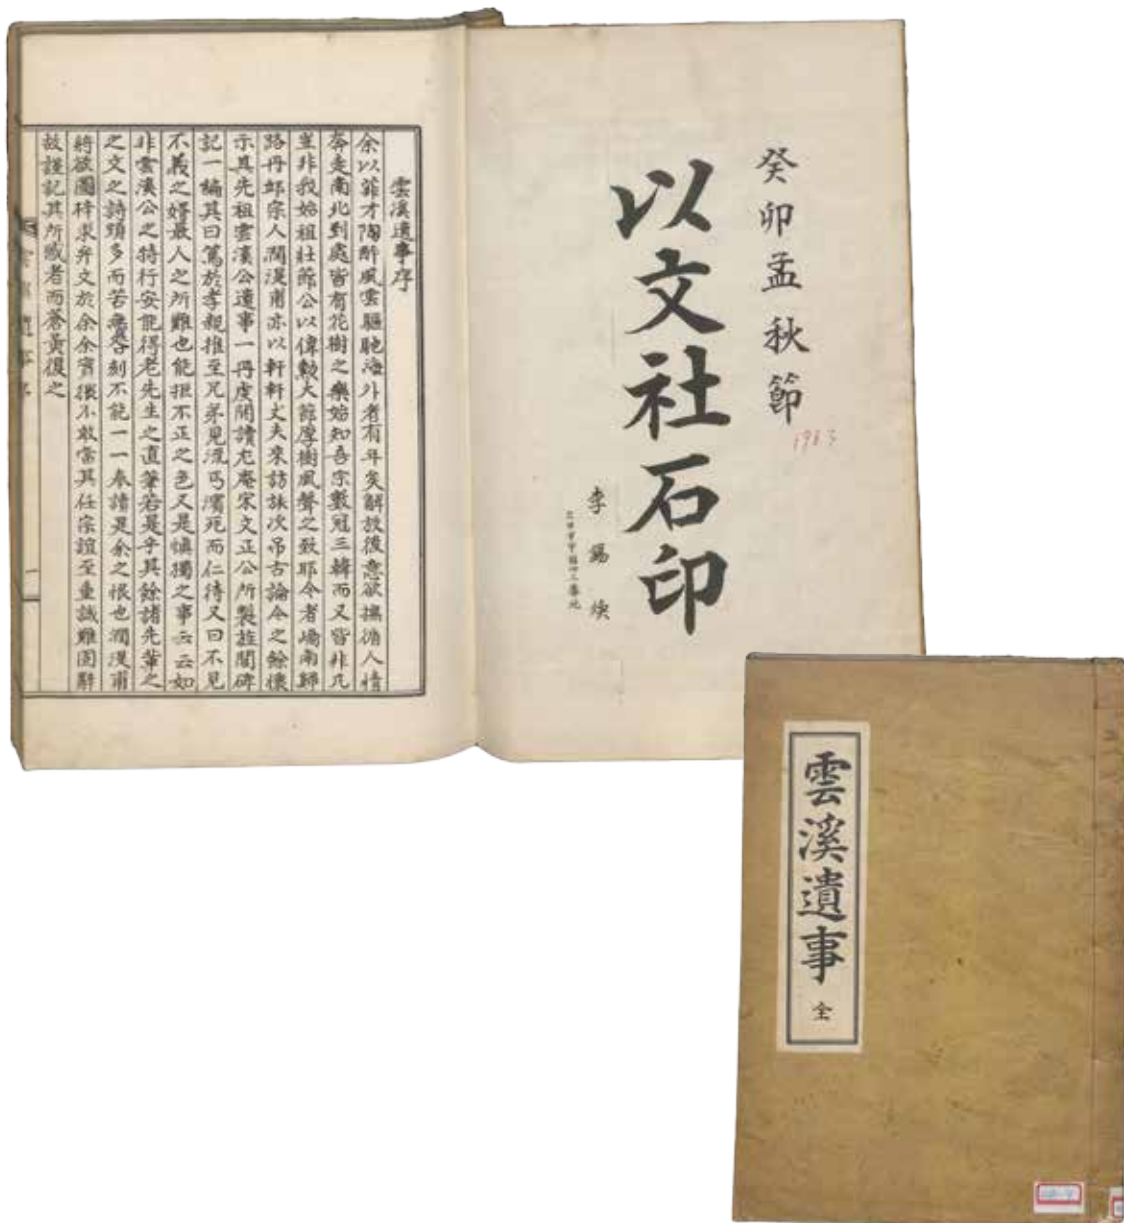 癸卯孟秋節
以文社石印
1963
李錫煥
雲溪遺事序
余以菲才陶醉風雲驅馳海外者有年矣解放後意欲搆循人情
奔走南北到處皆有花樹之樂始知吾宗數冠三韓而又皆非凡
豈非我始祖壯節公以偉勳大節厚樹風聲之致耶今者嶠南歸
路丹邱宗人潤漢甫亦以軒軒丈夫來訪旅次吊古論今之餘懷
示其先祖雲溪公遺事一冊虔閱讀尤庵宋文正公所製旌閭碑
記一編其曰篤於孝親推至兄弟見流丐濱死而仁待又曰不見
不義之婿最人之所難也能拒不正之色又是愼獨之事云云如
非雲溪公之特行安能得老先生之直筆若是乎其餘諸先輩之
之文之詩頗多而苦無暑刻不能一一奉讀是余之恨也潤漢甫
將欲圖梓求弁文於余余實猥不敢當其任宗誼至重誠難固辭
故謹記其所感者而蒼黃復之
雲溪遺事 全